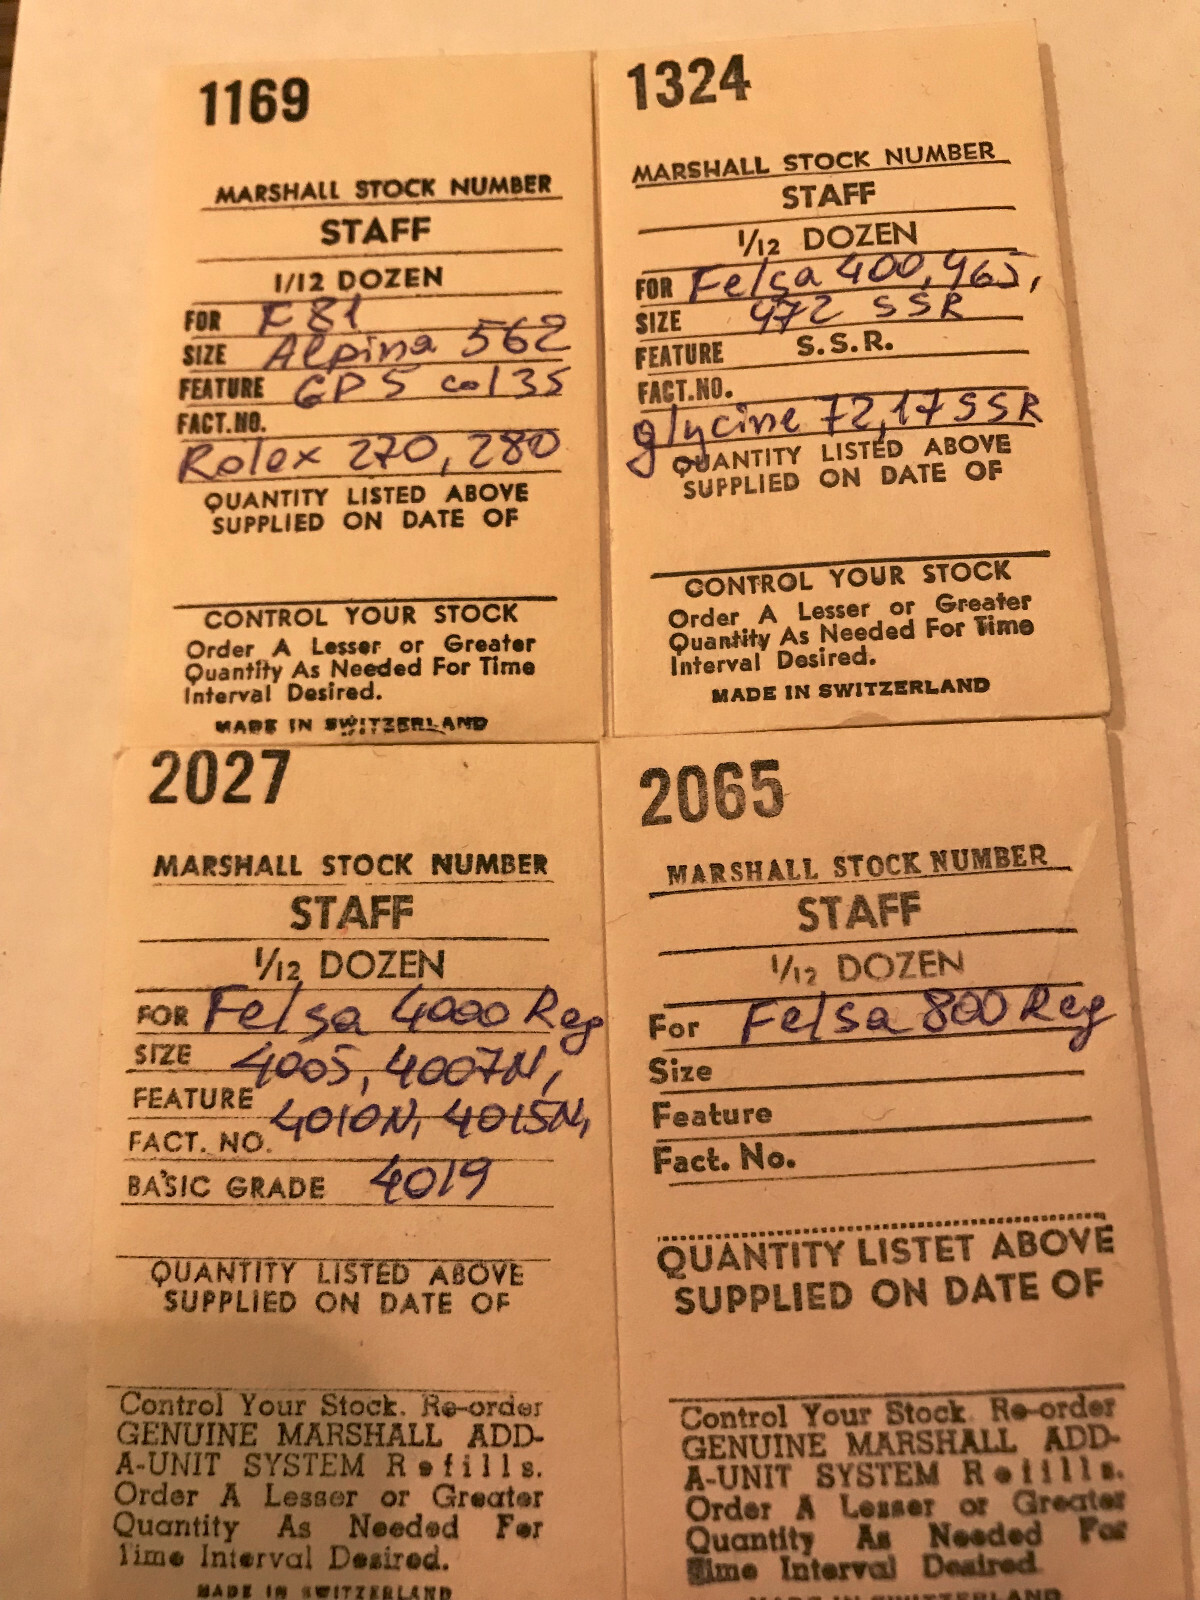 1169
MARSHALL STOCK NUMBER
STAFF
1/12 DOZEN
FOR F 81
SIZE Alpina 562
FEATURE GP 5 cal 35
FACT.NO.
Rolex 270, 280
QUANTITY LISTED ABOVE
SUPPLIED ON DATE OF
CONTROL YOUR STOCK
Order A Lesser or Greater
Quantity As Needed For Time
Interval Desired.
MADE IN SWITZERLAND
1324
MARSHALL STOCK NUMBER
STAFF
1/12 DOZEN
FOR Felsa 400, 465,
SIZE 472 SSR
FEATURE S.S.R.
FACT.NO.
glycine 72, 17 SSR
QUANTITY LISTED ABOVE
SUPPLIED ON DATE OF
CONTROL YOUR STOCK
Order A Lesser or Greater
Quantity As Needed For Time
Interval Desired.
MADE IN SWITZERLAND
2027
MARSHALL STOCK NUMBER
STAFF
1/12 DOZEN
FOR Felsa 4000 Reg
SIZE 4005, 4007N,
FEATURE 4010N, 4015N,
FACT. NO.
BASIC GRADE 4019
QUANTITY LISTED ABOVE
SUPPLIED ON DATE OF
Control Your Stock. Re-order
GENUINE MARSHALL ADD-
A-UNIT SYSTEM Refills.
Order A Lesser or Greater
Quantity As Needed For
Time Interval Desired.
MADE IN SWITZERLAND
2065
MARSHALL STOCK NUMBER
STAFF
1/12 DOZEN
For Felsa 800 Reg
Size
Feature
Fact. No.
QUANTITY LISTET ABOVE
SUPPLIED ON DATE OF
Control Your Stock. Re-order
GENUINE MARSHALL ADD-
A-UNIT SYSTEM Refills.
Order A Lesser or Greater
Quantity As Needed For
Time Interval Desired.
MADE IN SWITZERLAND